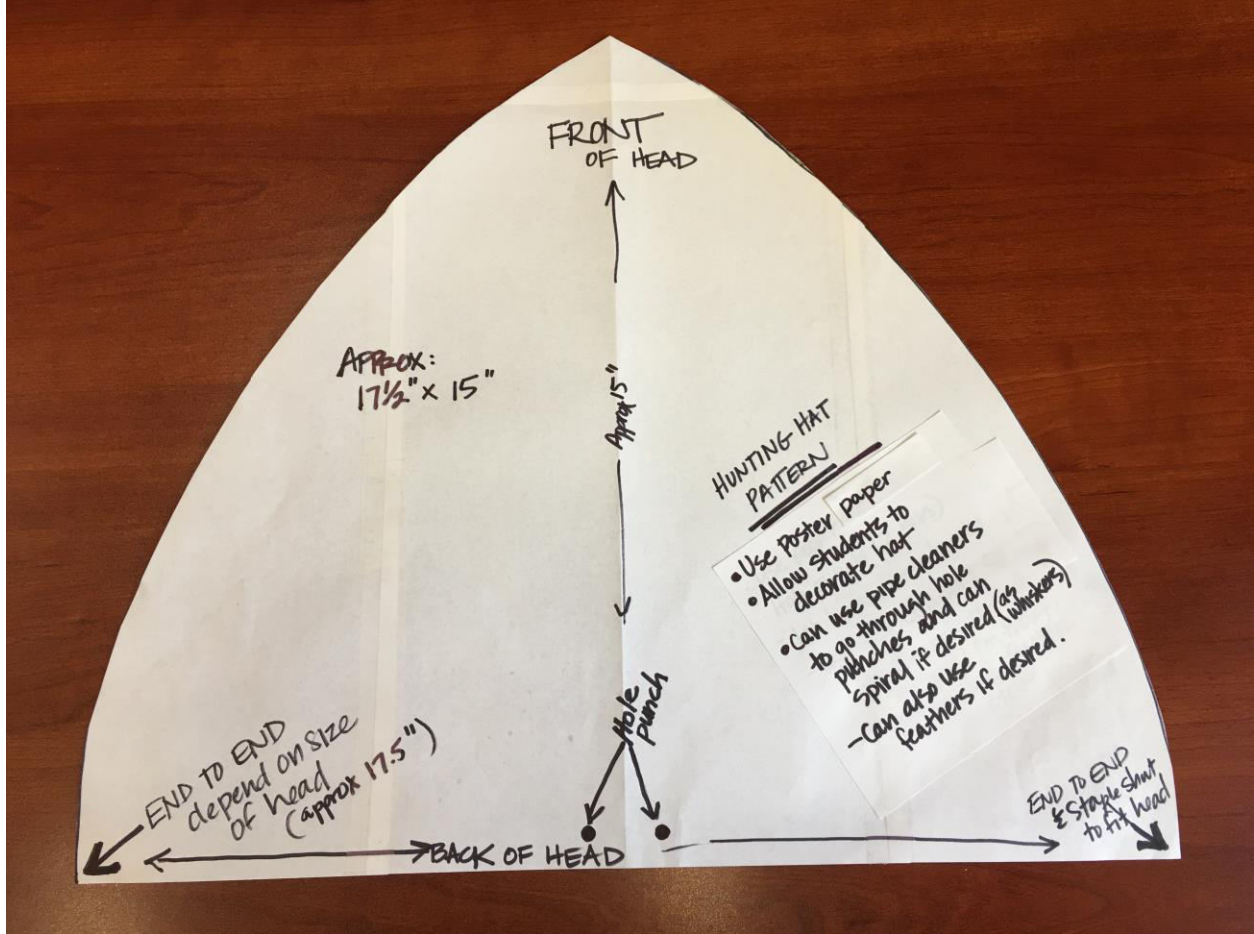 FRONT
OF HEAD
APPROX:
17½" x 15"
Approx 15"
HUNTING HAT
PATTERN
• Use poster paper
• Allow students to
decorate hat
• Can use pipe cleaners
to go through hole
punches and can
spiral if desired (as whiskers)
- Can also use
feathers if desired.
Hole
punch
END TO END
depend on size
of head
(approx 17.5")
BACK OF HEAD
END TO END
& Staple shut
to fit head